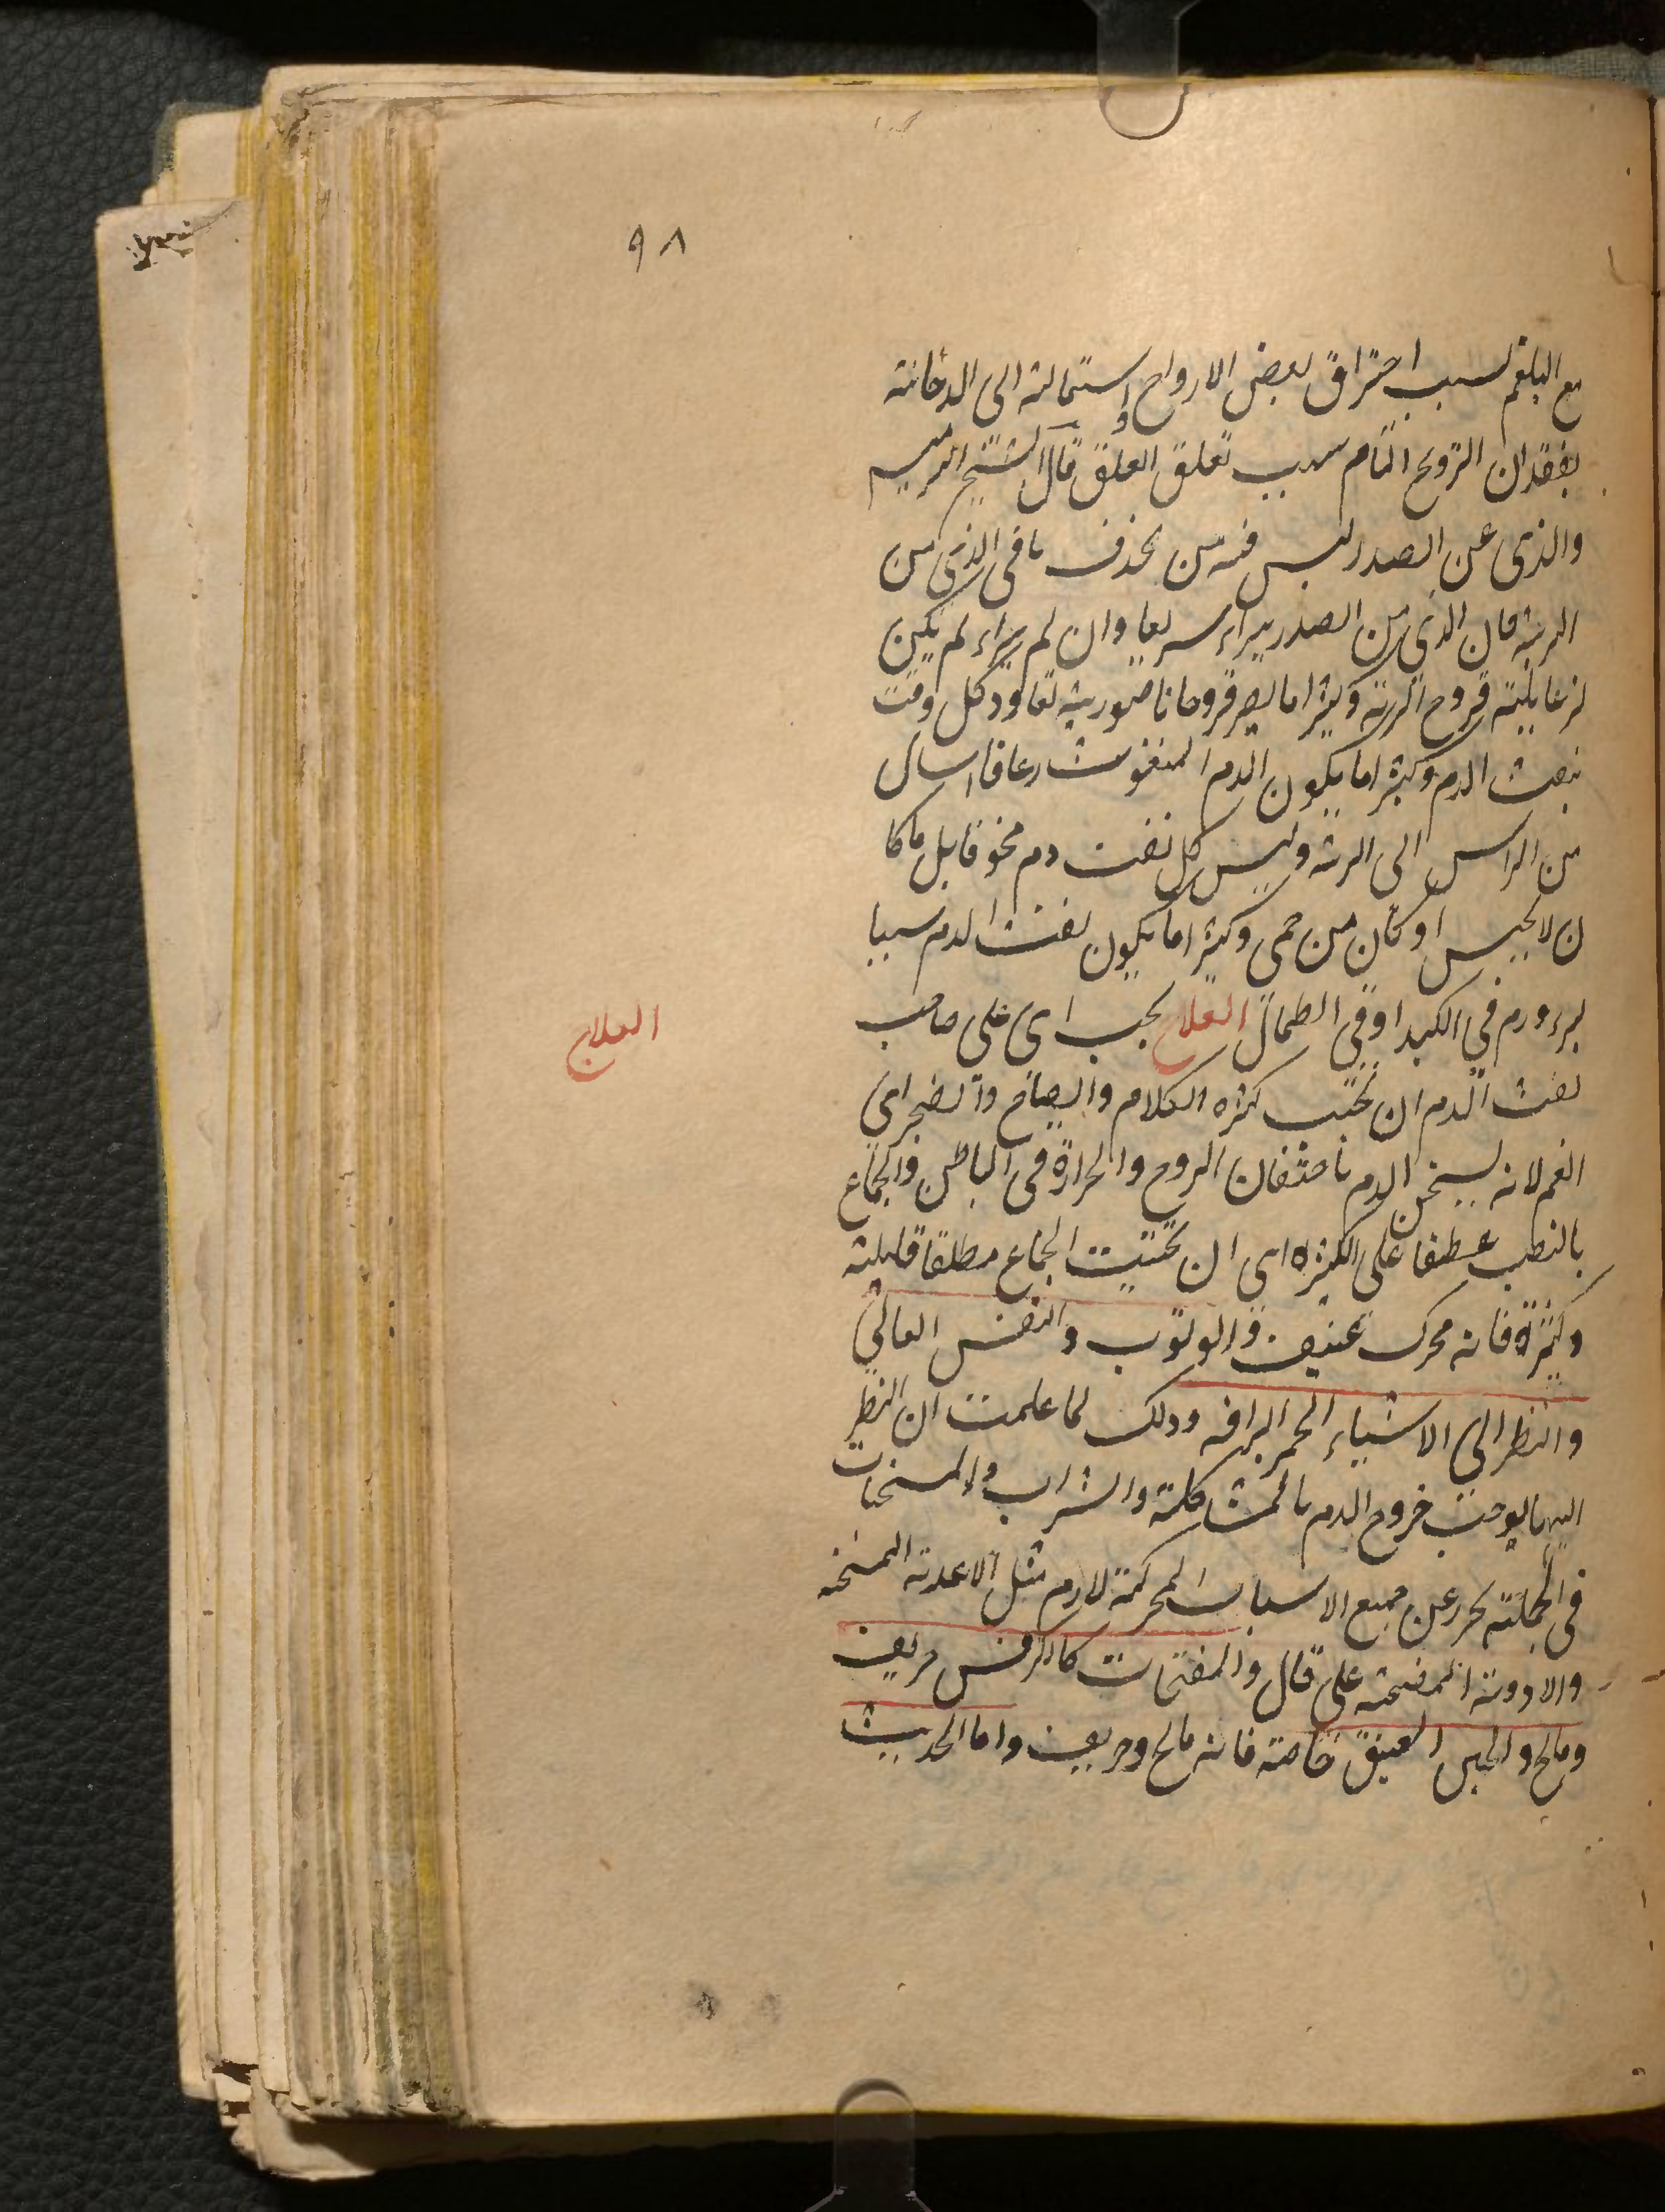 ٩٨
مع البلغم لسبب احتراق بعض الارواح واستحالته الى الدخانية
بفقدان الترويح التام سبب تعلق العلق قال الشيخ الرئيس
والذى عن الصدر ليس فيه من الخوف ما فى الذى من
الرئة فان الذى من الصدر يبراء سريعا وان لم يبراء لم يكن
له غايلته قروح الرئة وكثيرا ما يصير قروحا ناصورية تعاود كل وقت
بنفث الدم وكثيرا ما يكون الدم المنفوث رعافا سال
من الراس الى الرئة وليس كل نفث دم مخوفا بل ما كا
ن لا يحبس او كان من حمى وكثيرا ما يكون نفث الدم سببا
لبرء ورم فى الكبد او فى الطحال العلاج يجب اى على صاحب
العلاج
نفث الدم ان يجتنب كثرة الكلام والصياح والضجر اى
الغم لانه يسخن الدم باحتقان الروح والحرارة فى الباطن والجماع
بالنصب عطفا على الكثرة اى ان يجتنب الجماع مطلقا قليله
وكثيرة فانه محرك عنيف والوثوب والنفس العالى
والنظر الى الاشياء الحمر البراقه وذلك لما علمت ان النظر
اليها يوجب خروج الدم بالمشاكلة والشراب والمسخنات
فى الجملته يحرز عن جميع الاسباب المحركة للدم مثل الاغذية المسخنه
والادوية المفتحه على قال والمفتحات كالكرفس حريف
ومالح والجبن العتيق خاصة فانه مالح وحريف واما الحديث